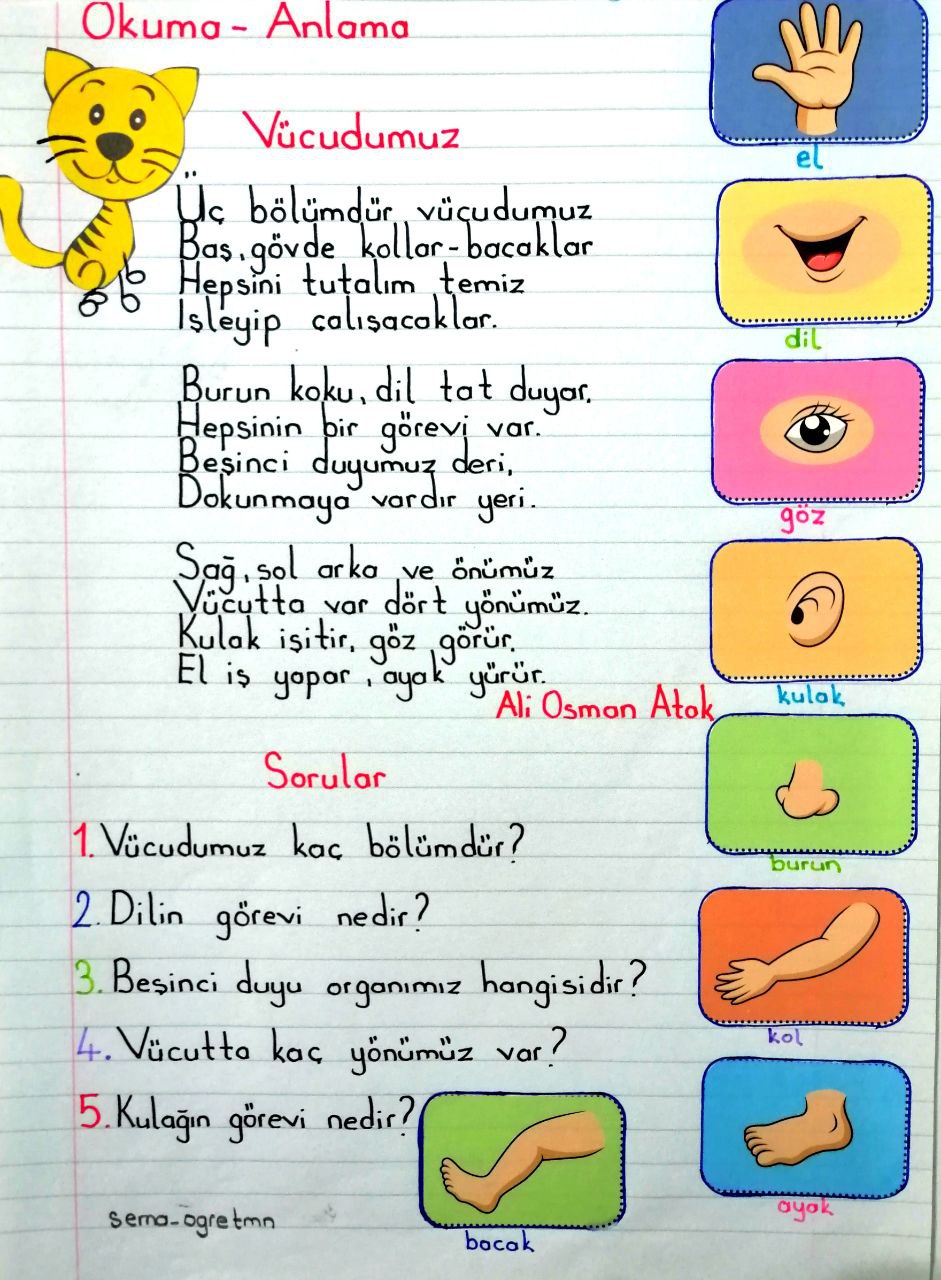 Okuma - Anlama
Vücudumuz
Üç bölümdür vücudumuz
Baş, gövde kollar-bacaklar
Hepsini tutalım temiz
İşleyip çalışacaklar.
Burun koku, dil tat duyar,
Hepsinin bir görevi var.
Beşinci duyumuz deri,
Dokunmaya vardır yeri.
Sağ, sol arka ve önümüz
Vücutta var dört yönümüz.
Kulak işitir, göz görür,
El iş yapar, ayak yürür.
Ali Osman Atak
Sorular
1. Vücudumuz kaç bölümdür?
2. Dilin görevi nedir?
3. Beşinci duyu organımız hangisidir?
4. Vücutta kaç yönümüz var?
5. Kulağın görevi nedir?
sema-ögretmn
el
dil
göz
kulak
burun
kol
ayak
bacak